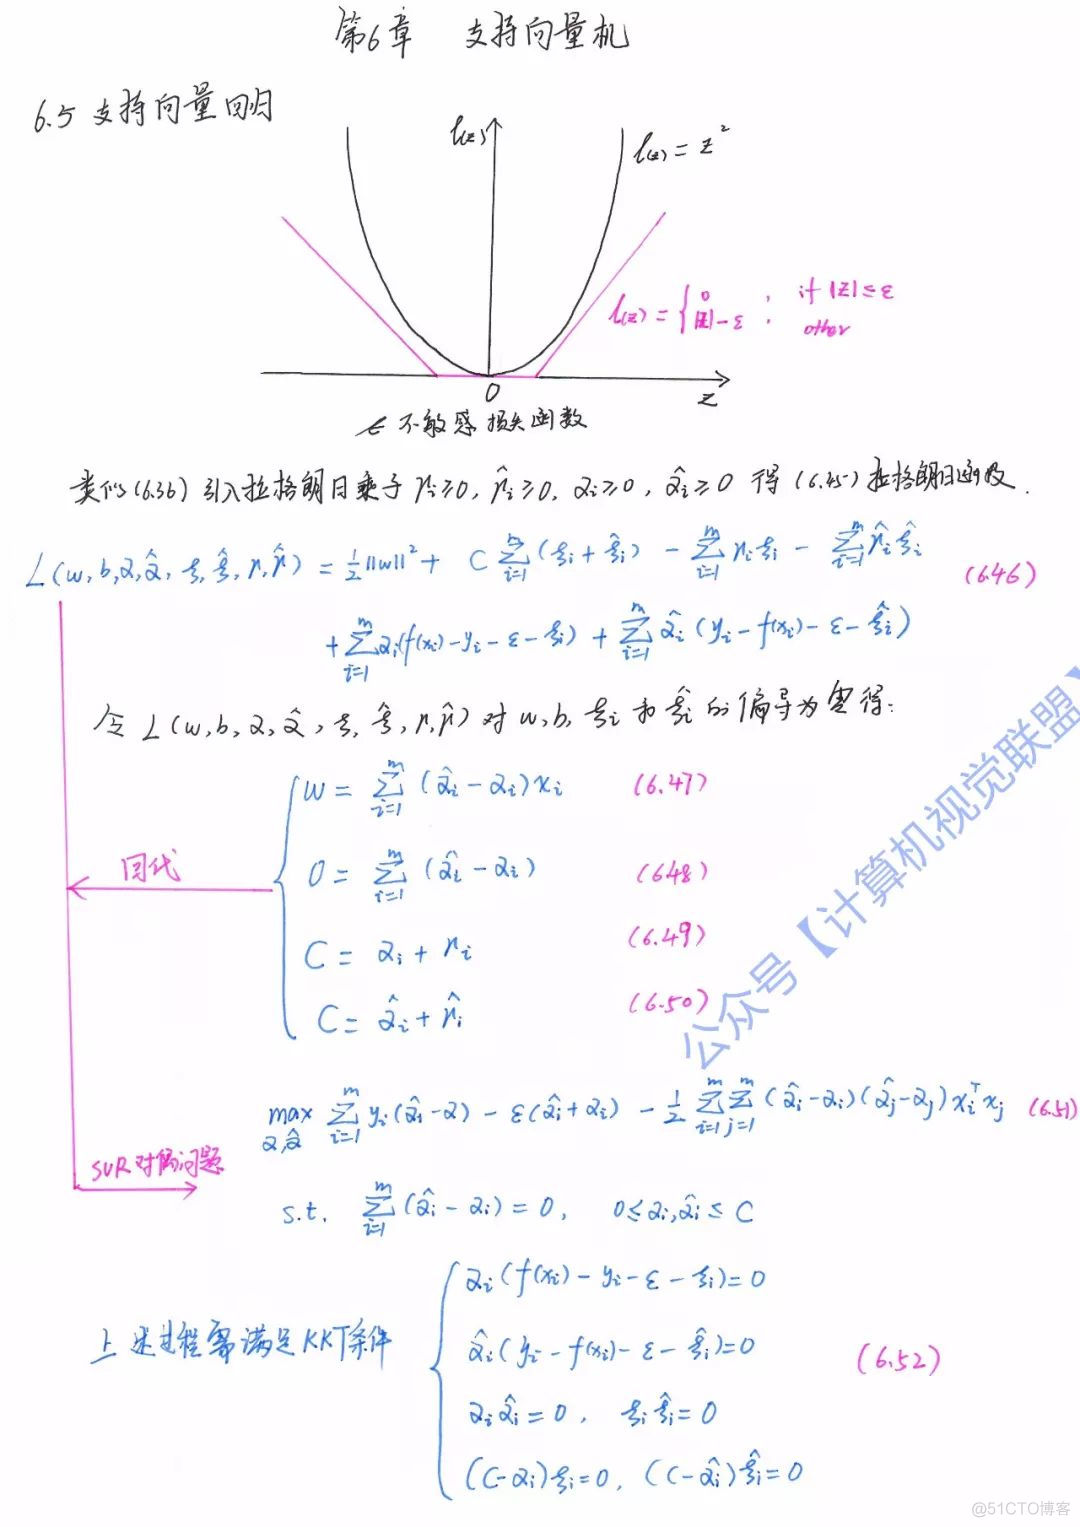 第6章 支持向量机
6.5 支持向量回归
l(z)
l(z) = z²
l(z) = { 0 ; if |z| ≤ ε
|z| - ε ; other
0
z
ε 不敏感损失函数
类似(6.36)引入拉格朗日乘子 μi≥0, μ̂i≥0, αi≥0, α̂i≥0 得 (6.45) 拉格朗日函数.
L(w,b,α,α̂,ξ,ξ̂,μ,μ̂) = ½||w||² + C Σ_{i=1}^{m} (ξi + ξ̂i) - Σ_{i=1}^{m} μiξi - Σ_{i=1}^{m} μ̂iξ̂i (6.46)
+ Σ_{i=1}^{m} αi(f(xi) - yi - ε - ξi) + Σ_{i=1}^{m} α̂i(yi - f(xi) - ε - ξ̂i)
令 L(w,b,α,α̂,ξ,ξ̂,μ,μ̂) 对 w,b,ξi 和 ξ̂i 的偏导为零得:
w = Σ_{i=1}^{m} (α̂i - αi)xi (6.47)
回代
0 = Σ_{i=1}^{m} (α̂i - αi) (6.48)
C = αi + μi (6.49)
C = α̂i + μ̂i (6.50)
max_{α,α̂} Σ_{i=1}^{m} yi(α̂i - α) - ε(α̂i + αi) - ½ Σ_{i=1}^{m} Σ_{j=1}^{m} (α̂i - αi)(α̂j - αj) xi^T xj (6.51)
SVR对偶问题
s.t. Σ_{i=1}^{m} (α̂i - αi) = 0, 0 ≤ αi, α̂i ≤ C
上述过程需满足KKT条件
αi(f(xi) - yi - ε - ξi) = 0
α̂i(yi - f(xi) - ε - ξ̂i) = 0
(6.52)
αiα̂i = 0, ξiξ̂i = 0
(C - αi)ξi = 0, (C - α̂i)ξ̂i = 0
公众号【计算机视觉联盟】
@51CTO博客